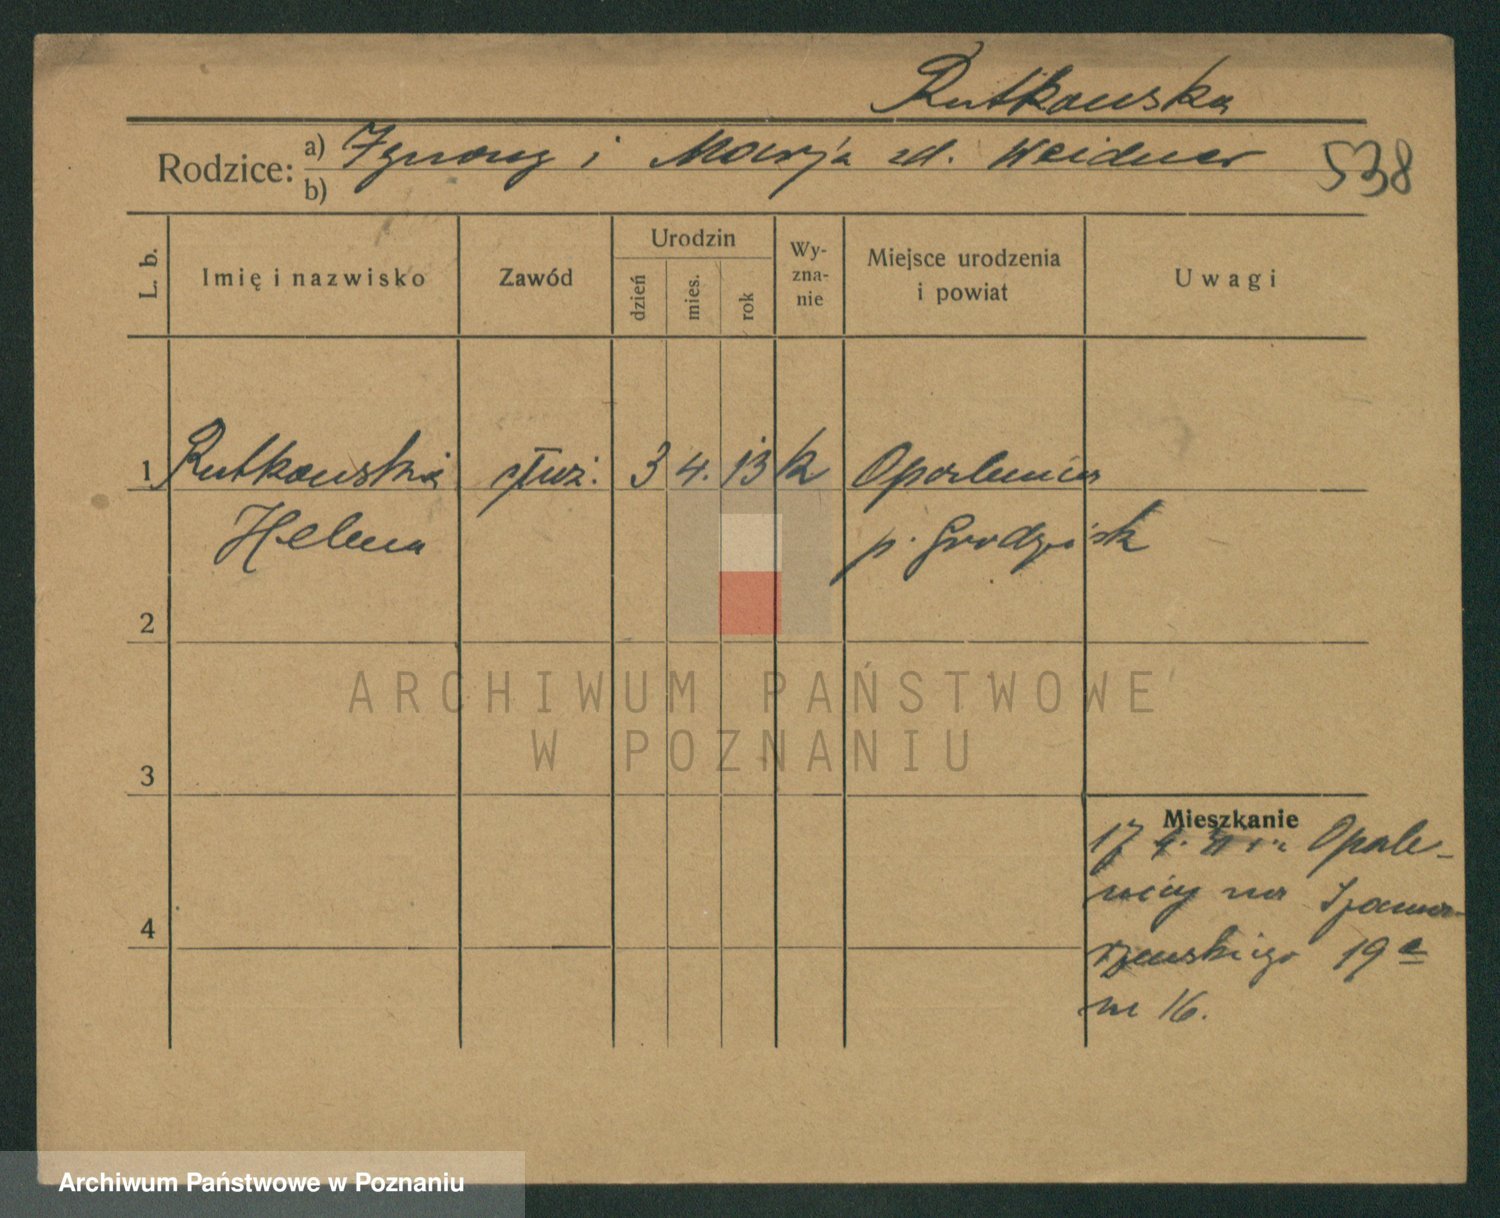 Rutkowska
Rodzice: a) Ignacy i Marja zd. Weidner
b)
538
L. b.
Imię i nazwisko
Zawód
Urodzin
dzień
mies.
rok
Wy-
zna-
nie
Miejsce urodzenia
i powiat
Uwagi
1 Rutkowska służ. 3 4. 13 k Opalenica
Helena p. Grodzisk
2
3
4
Mieszkanie
17 4. Opale-
nicy na
19a
m 16.
ARCHIWUM PAŃSTWOWE
W POZNANIU
Archiwum Państwowe w Poznaniu